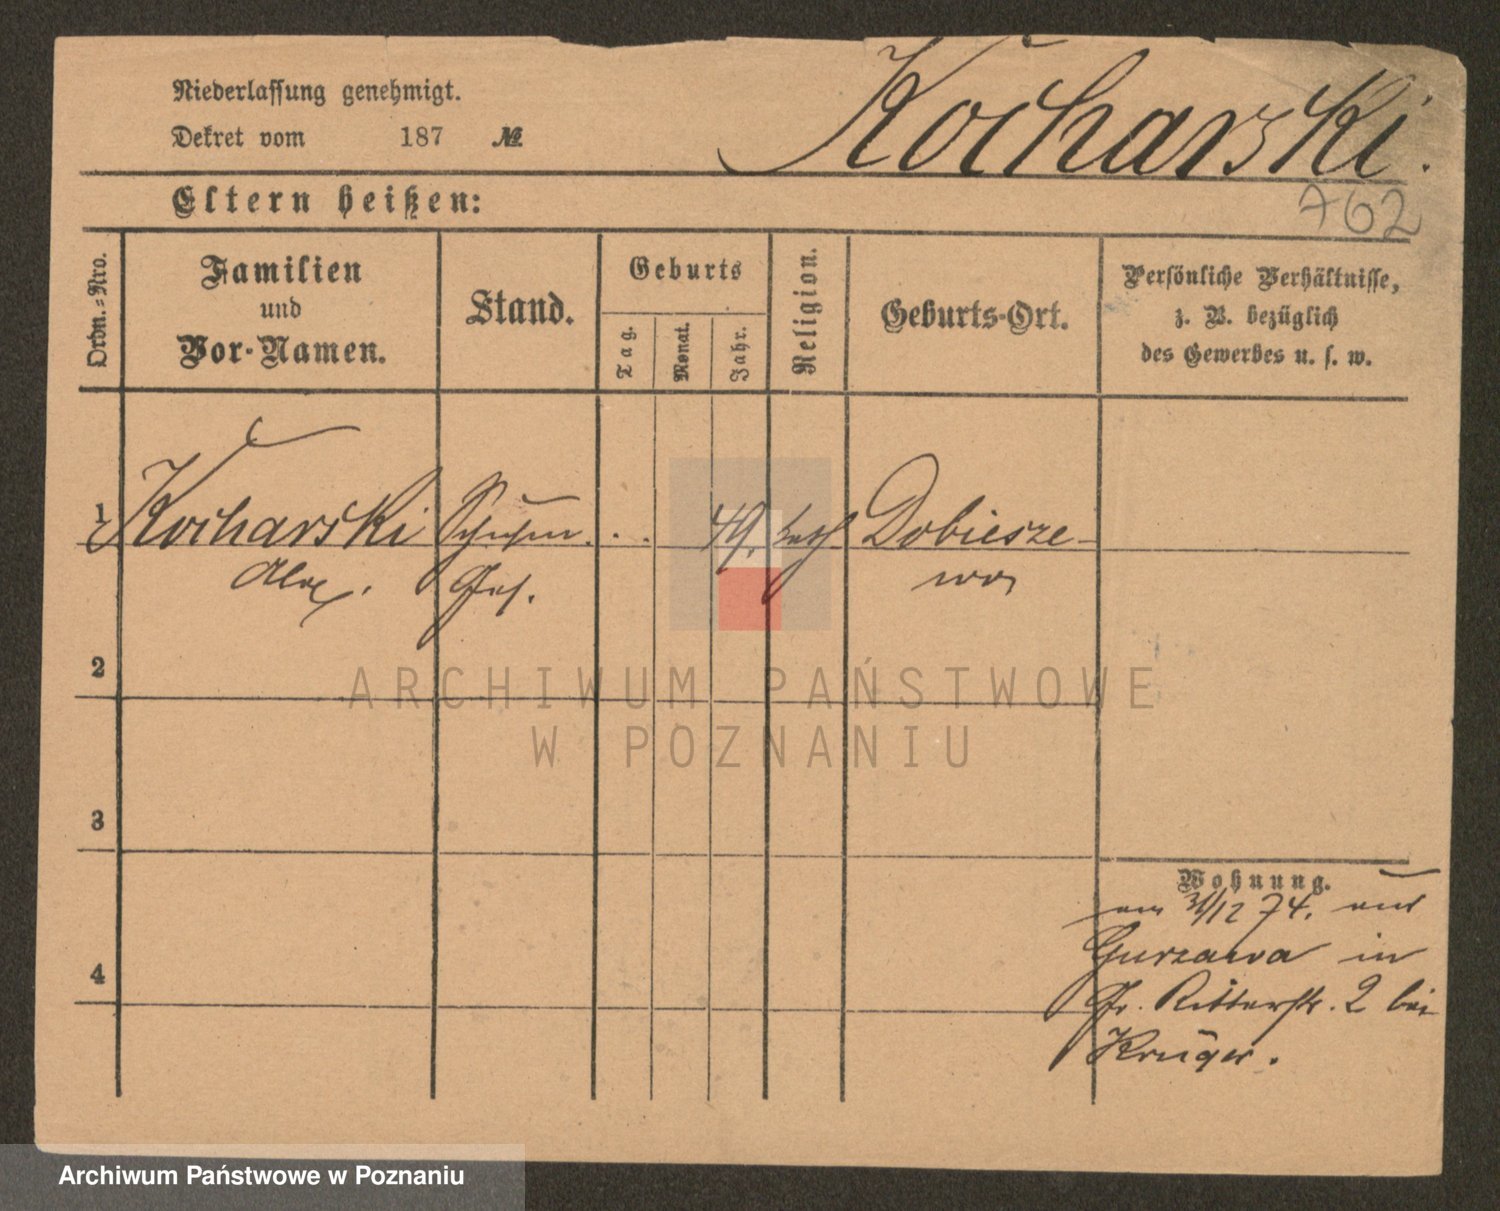 Niederlassung genehmigt.
Dekret vom 187 №
Kocharski.
762
Eltern heißen:
Ordn.-Nro.
Familien
und
Vor-Namen.
Stand.
Geburts
Tag.
Monat.
Jahr.
Religion.
Geburts-Ort.
Persönliche Verhältnisse,
z. B. bezüglich
des Gewerbes u. s. w.
1 Kocharski Schuhm. . . 49. kath Dobiesze-
Alex. Ges. wo
2
ARCHIWUM PAŃSTWOWE
W POZNANIU
3
4
Wohnung.
am 31/12 74. aus
Gurzawa in
Gr. Ritterstr. 2 bei
Krüger.
Archiwum Państwowe w Poznaniu